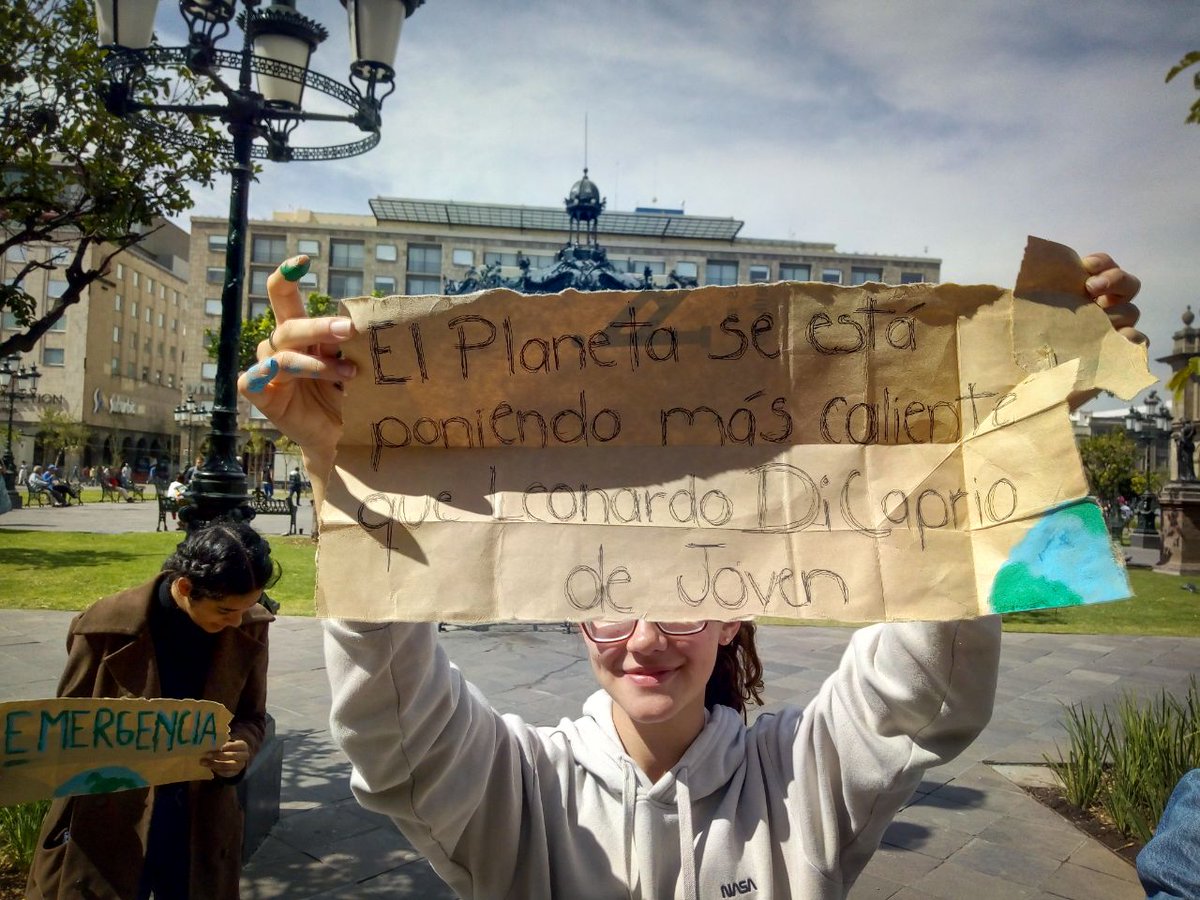 El Planeta se está
poniendo más caliente
que Leonardo DiCaprio
de Joven
EMERGENCIA
NASA